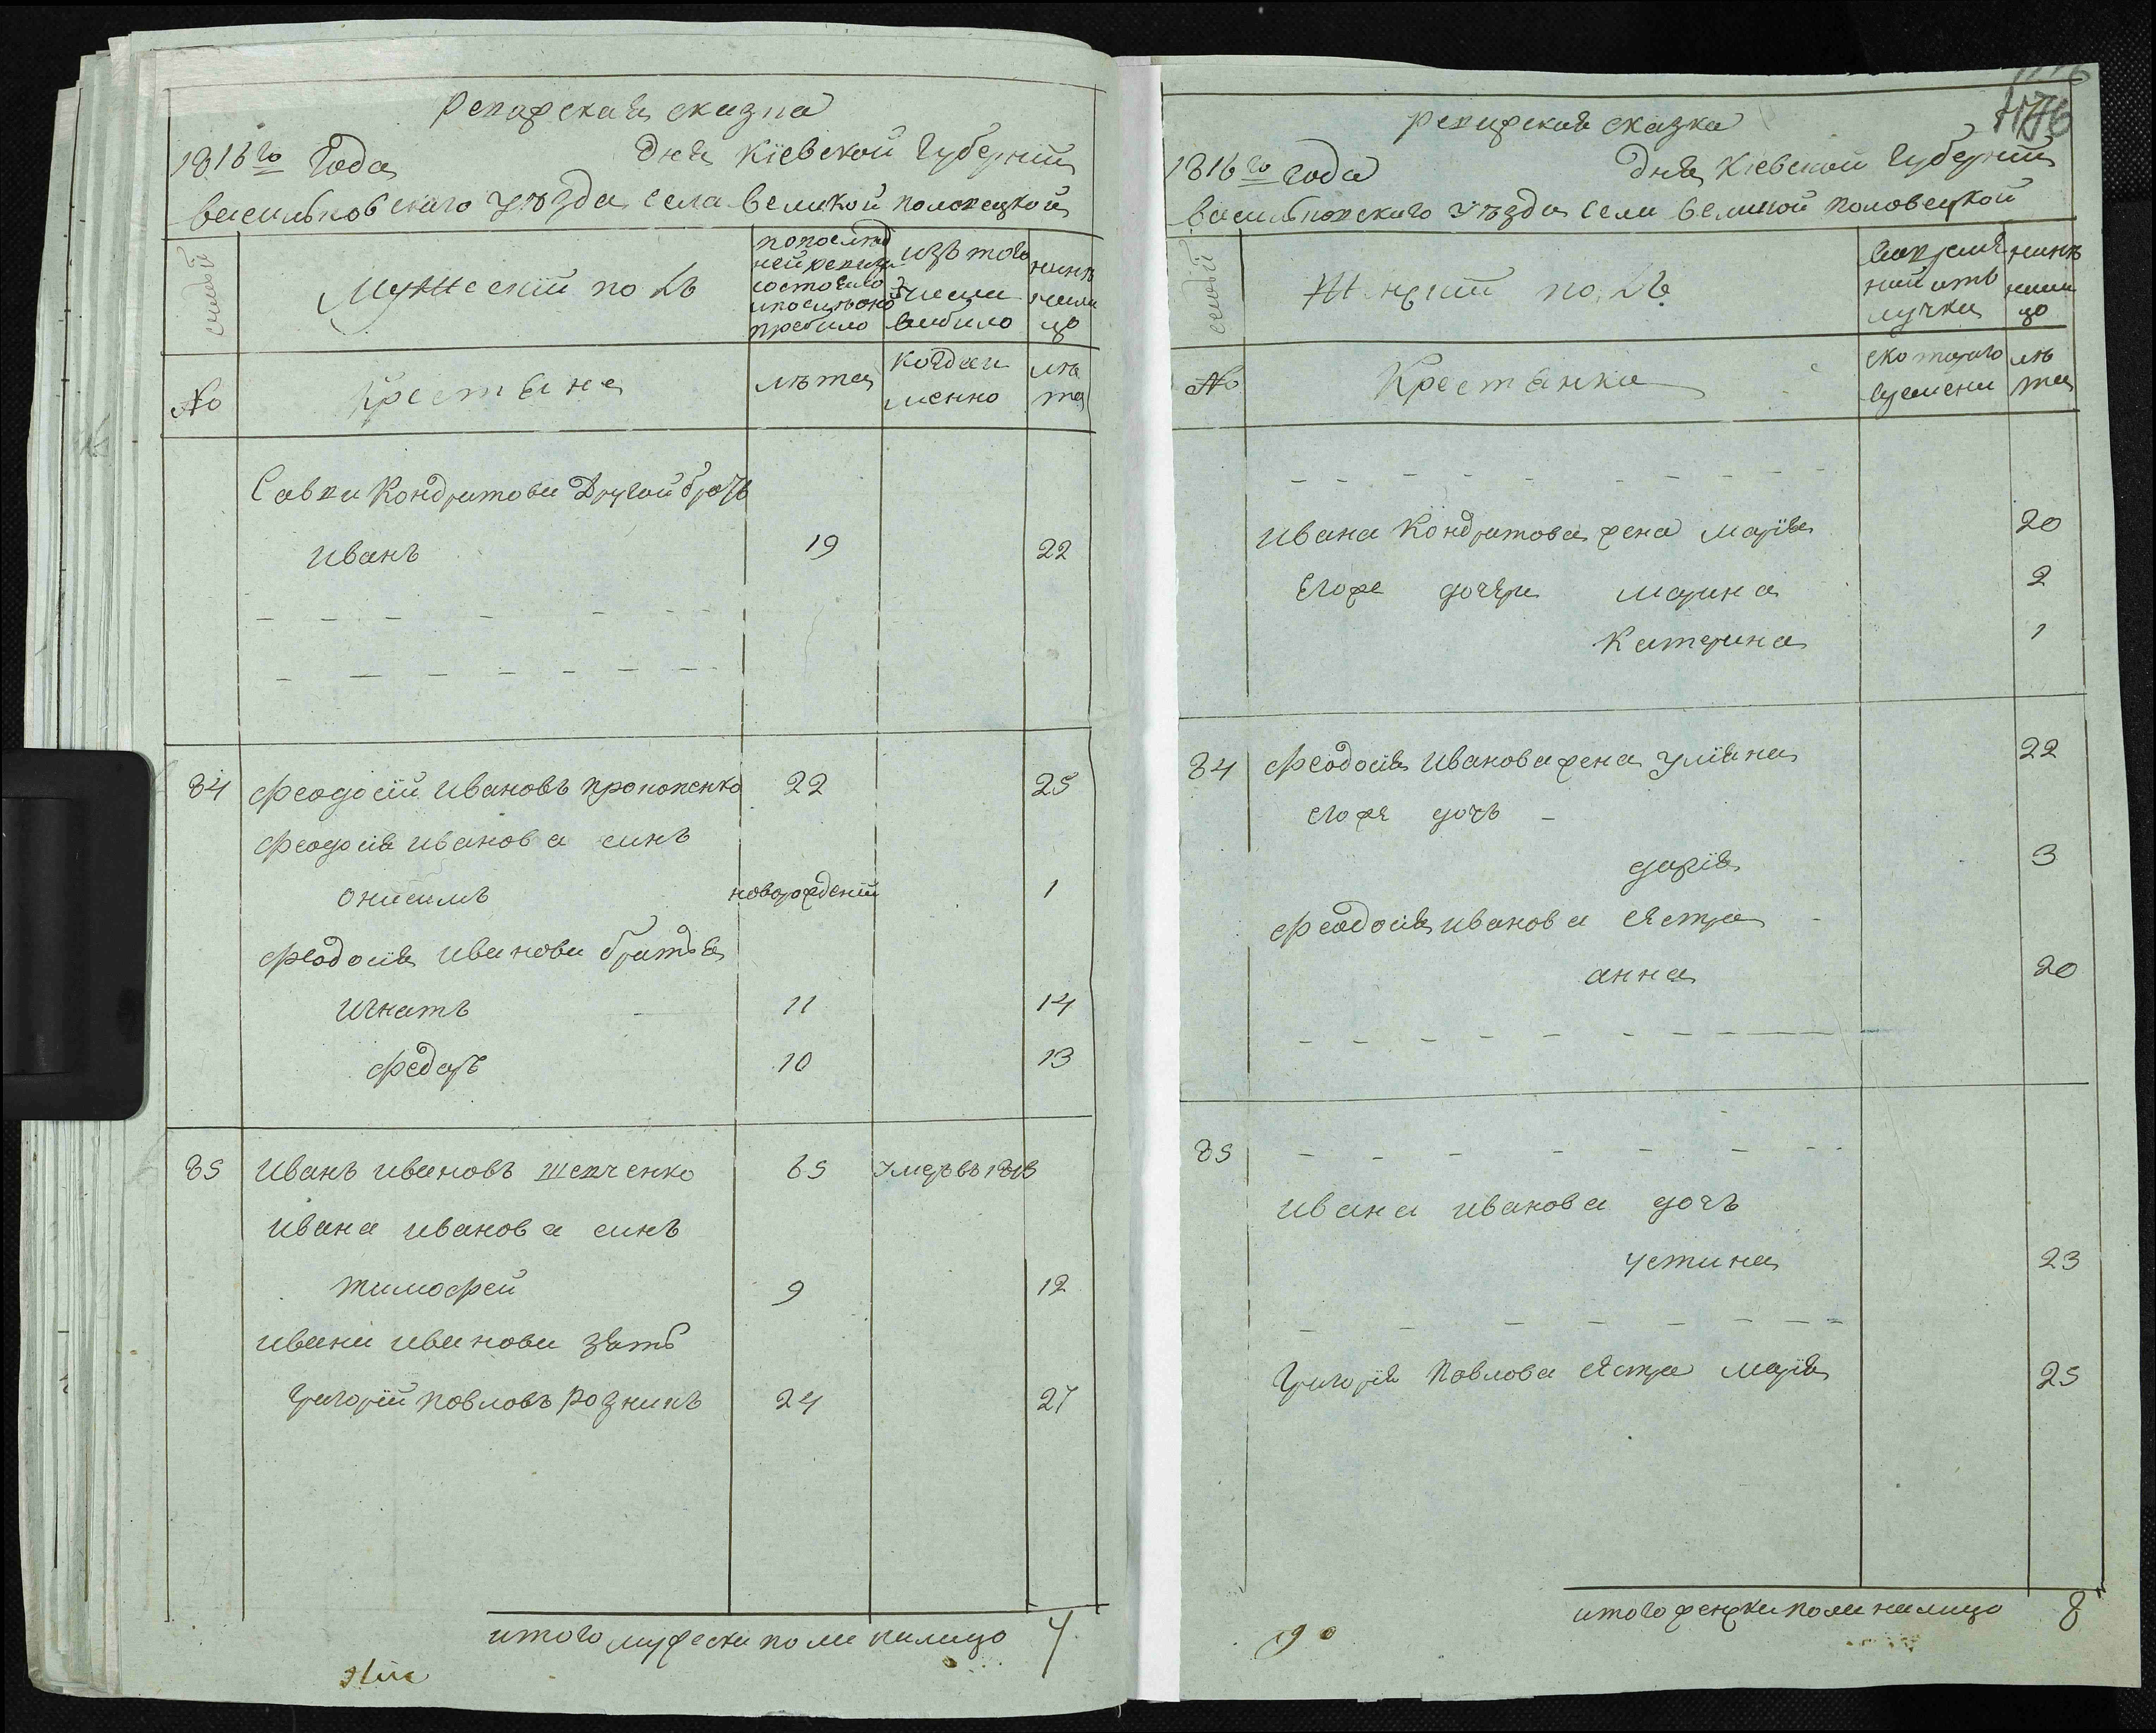 Ревизская сказка
1816го Года дня Кіевской Губерніи
васильковскаго уѣзда села Великой половецкой
семьи
Мужескій полъ
попослѣд
ней ревизи
состояло
ипослѣоно
прибыло
изъ того
числа
выбыло
нынѣ
нали
цо
№
Крестьяне
лѣта
Когда и
менно
лѣ
та
Савки Кондратова Другой братъ
иванъ 19 22
84 Феодосій Ивановъ прокопенко 22 25
Феодосія иванова синъ
онисимъ новорожденій 1
Феодосія иванова братья
игнатъ 11 14
Федоръ 10 13
85 Иванъ ивановъ шевченко 65 Умеръ въ 1813
ивана иванова синъ
тимофей 9 12
ивана иванова зять
григорій павловъ Розникъ 24 27
итого мужеска пола налицо 7
ревизская сказка
1816го года дня Кіевской Губерніи
васильковскаго уѣзда села великой половецкой
семьи
Женскій полъ
нинѣ
нали
цо
№
Крестьянки
скотораго
времени
лѣ
та
ивана Кондратова жена марія 20
Егоже дочери марина 2
Катерина 1
84 Феодосія Иванова жена уліяна 22
егоже дочь
дарія 3
Феодосія иванова сестра
анна 20
85
ивана иванова дочь
устина 23
григорія Павлова сестра марія 25
итого женска пола налицо 8